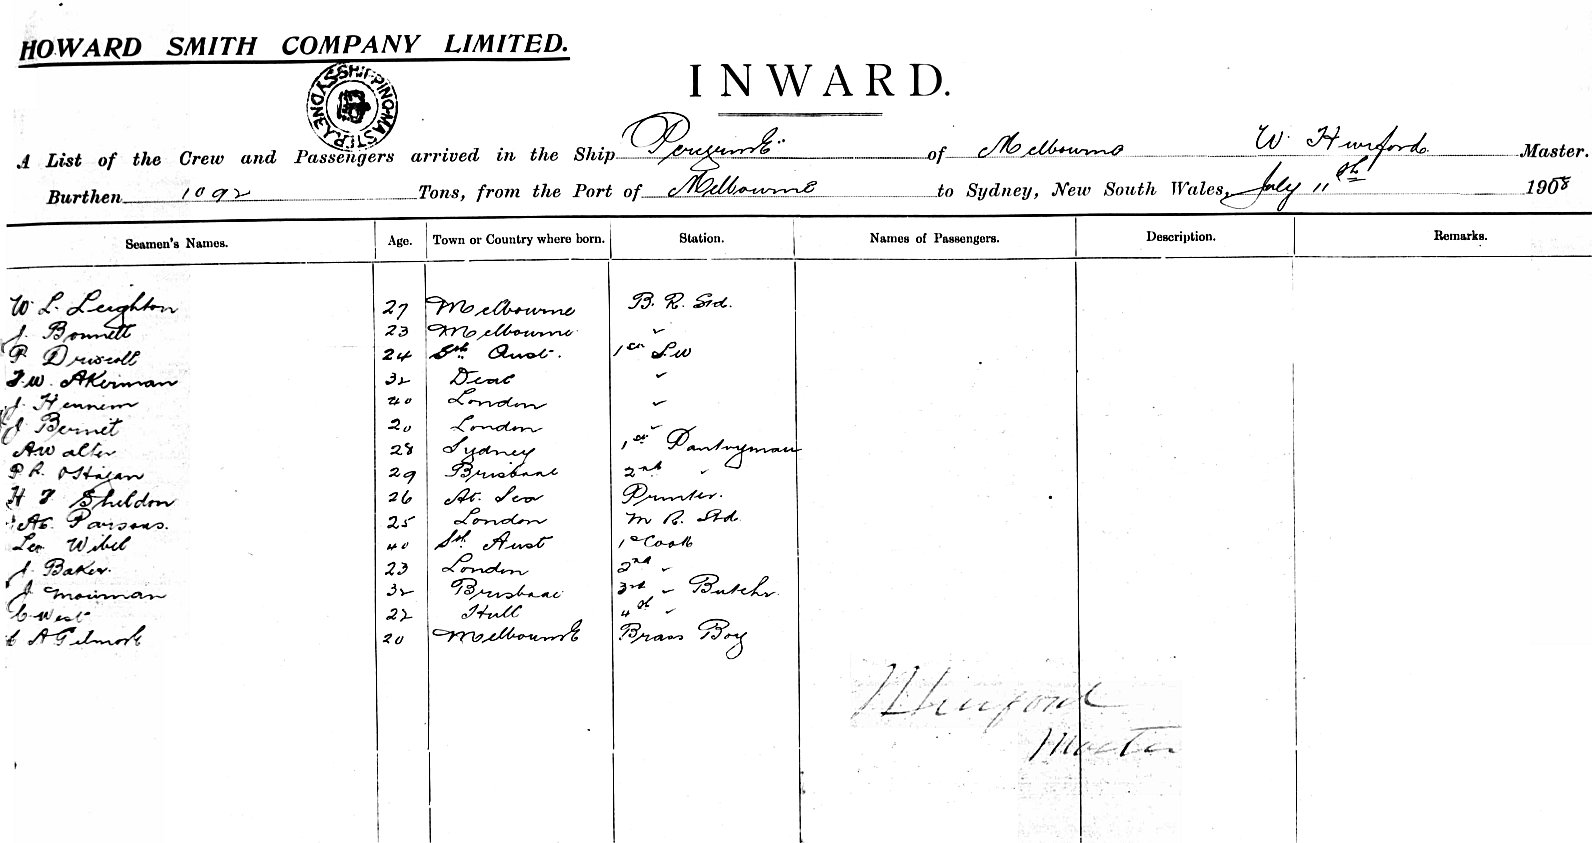 HOWARD SMITH COMPANY LIMITED.
SHIPPING MASTER SYDNEY
INWARD.
A List of the Crew and Passengers arrived in the Ship Peregrine" of Melbourne W. Hurford Master.
Burthen 1092 Tons, from the Port of Melbourne to Sydney, New South Wales, July 11th 1908
Seamen's Names. Age. Town or Country where born. Station. Names of Passengers. Description. Remarks.
W. L. Leighton 27 Melbourne B. R. Std.
J. Bonnett 23 Melbourne "
P. Driscoll 24 Sth Aust. 1st Sw
F. W. Akerman 32 Deal "
J. Hennem 40 London "
J. Bernet 20 London "
A Walter 28 Sydney 1st Pantryman
P R. O'Hagan 29 Brisbane 2nd "
H F Sheldon 26 At. Sea Printer.
At. Parsons. 25 London M R. Std
Leo Wibel 40 Sth Aust 1st Cook
J. Baker. 23 London 2nd "
J Moirman 32 Brisbane 3rd " Butchr.
C West 22 Hull 4th "
C A Gilmore 20 Melbourne Brass Boy
W Hurford
Master